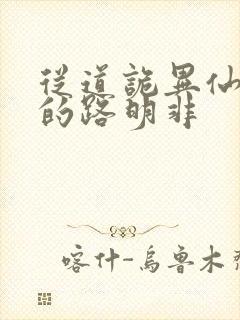 從道詭異仙
的路明非
喀什-烏魯木齊